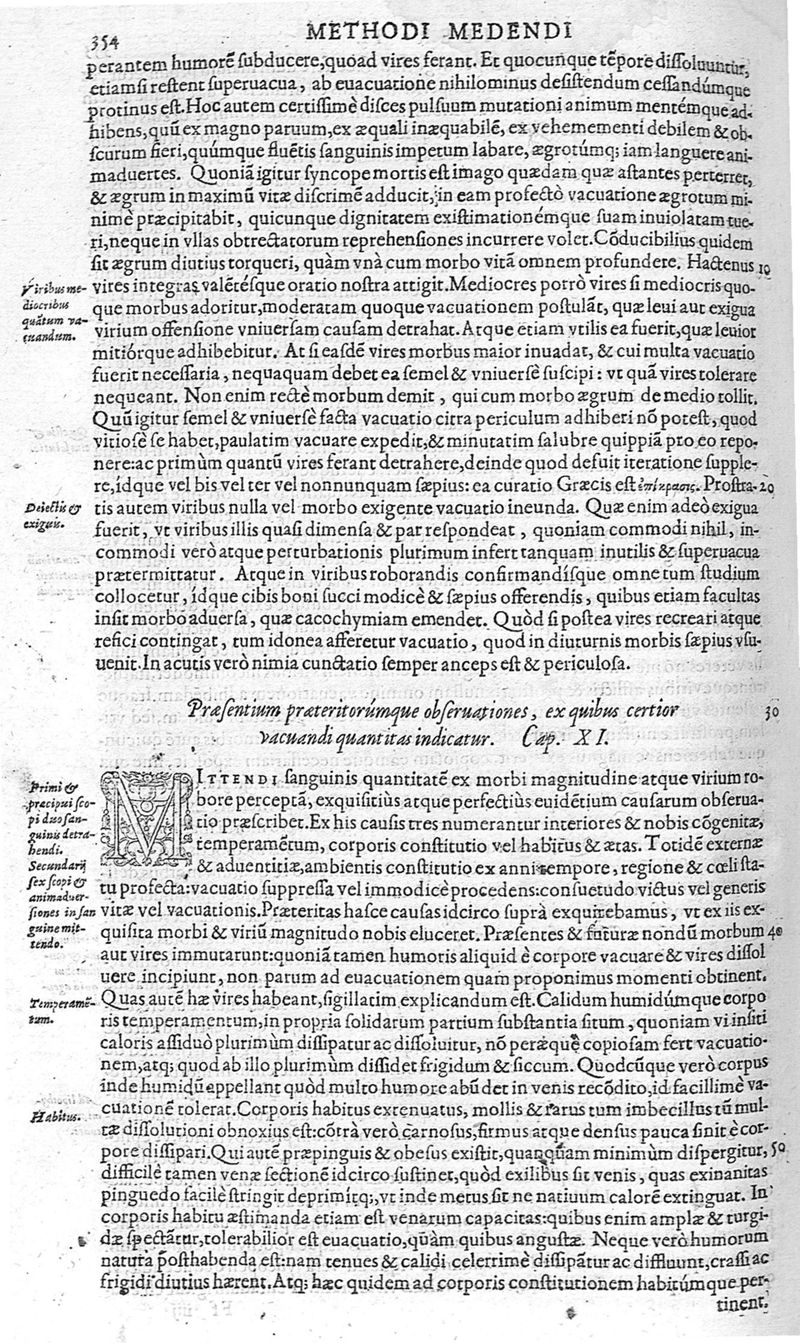 354
METHODI MEDENDI
perantem humorē ſubducere, quoad vires ferant. Et quocunque tēpore diſſoluuntur,
etiamſi reſtent ſuperuacua, ab euacuatione nihilominus deſiſtendum ceſſandúmque
protinus eſt. Hoc autem certiſſimè diſces pulſuum mutationi animum mentémque ad-
hibens, quū ex magno paruum, ex æquali inæquabilē, ex vehementi debilem & ob-
ſcurum fieri, quúmque fluētis ſanguinis impetum labare, ægrotúmq; iam languere ani-
maduertes. Quoniā igitur ſyncope mortis eſt imago quædam quæ aſtantes perterret,
& ægrum in maximū vitæ diſcrimē adducit, in eam profectò vacuatione ægrotum mi-
nimè præcipitabit, quicunque dignitatem exiſtimationémque ſuam inuiolatam tue-
ri, neque in vllas obtrectatorum reprehenſiones incurrere volet. Cōducibilius quidem
ſit ægrum diutius torqueri, quàm vnà cum morbo vitā omnem profundere. Hactenus 10
Viribus me-
diocribus
quātum va-
cuandum.
vires integras valētéſque oratio noſtra attigit. Mediocres porrò vires ſi mediocris quo-
que morbus adoritur, moderatam quoque vacuationem poſtulāt, quæ leui aut exigua
virium offenſione vniuerſam cauſam detrahat. Atque etiam vtilis ea fuerit, quæ leuior
mitiórque adhibebitur. At ſi eaſdē vires morbus maior inuadat, & cui multa vacuatio
fuerit neceſſaria, nequaquam debet ea ſemel & vniuerſè ſuſcipi: vt quā vires tolerare
nequeant. Non enim rectè morbum demit, qui cum morbo ægrum de medio tollit.
Quū igitur ſemel & vniuerſè facta vacuatio citra periculum adhiberi nō poteſt, quod
vitioſè ſe habet, paulatim vacuare expedit, & minutatim ſalubre quippiā pro eo repo-
nere: ac primùm quantū vires ferant detrahere, deinde quod defuit iteratione ſupple-
re, ídque vel bis vel ter vel nonnunquam ſæpius: ea curatio Græcis eſt ἐπίκρασις. Proſtra- 20
Deiectis &
exiguis.
tis autem viribus nulla vel morbo exigente vacuatio ineunda. Quæ enim adeò exigua
fuerit, vt viribus illis quaſi dimenſa & par reſpondeat, quoniam commodi nihil, in-
commodi verò atque perturbationis plurimum infert tanquam inutilis & ſuperuacua
prætermittatur. Atque in viribus roborandis confirmandíſque omne tum ſtudium
collocetur, ídque cibis boni ſucci modicè & ſæpius offerendis, quibus etiam facultas
inſit morbo aduerſa, quæ cacochymiam emendet. Quòd ſi poſtea vires recreari atque
refici contingat, tum idonea afferetur vacuatio, quod in diuturnis morbis ſæpius vſu-
uenit. In acutis verò nimia cunctatio ſemper anceps eſt & periculoſa.
Præſentium præteritorúmque obſeruationes, ex quibus certior 30
vacuandi quantitas indicatur. Cap. XI.
Primi &
præcipui ſco-
pi duo ſan-
guinis detra-
hendi.
Secundarij
ſex ſcopi &
animaduer-
ſiones in ſan
guine mit-
tendo.
MITTENDI ſanguinis quantitatē ex morbi magnitudine atque virium ro-
bore perceptā, exquiſitiùs atque perfectiùs euidētium cauſarum obſerua-
tio præſcribet. Ex his cauſis tres numerantur interiores & nobis cōgenitæ,
temperamētum, corporis conſtitutio vel habitus & ætas. Totidē externæ
& aduentitiæ, ambientis conſtitutio ex anni tempore, regione & cœli ſta-
tu profecta: vacuatio ſuppreſſa vel immodicè procedens: conſuetudo victus vel generis
vitæ vel vacuationis. Præteritas haſce cauſas idcirco ſuprà exquirebamus, vt ex iis ex-
quiſita morbi & viriū magnitudo nobis eluceret. Præſentes & futuræ nondū morbum 40
aut vires immutarunt: quoniā tamen humoris aliquid è corpore vacuare & vires diſſol
uere incipiunt, non parum ad euacuationem quam proponimus momenti obtinent.
Temperamē-
tum.
Quas autē hæ vires habeant, ſigillatim explicandum eſt. Calidum humidúmque corpo
ris temperamentum, in propria ſolidarum partium ſubſtantia ſitum, quoniam vi inſiti
caloris aſſiduò plurimùm diſſipatur ac diſſoluitur, nō peræquè copioſam fert vacuatio-
nem, atq; quod ab illo plurimùm diſſidet frigidum & ſiccum. Quodcūque verò corpus
inde humidū appellant quòd multo humore abūdet in venis recōdito, id facillimè va-
Habitus.
cuationē tolerat. Corporis habitus extenuatus, mollis & rarus tum imbecillus tū mul-
tæ diſſolutioni obnoxius eſt: cōtrà verò carnoſus, firmus atque denſus pauca ſinit è cor-
pore diſſipari. Qui autē præpinguis & obeſus exiſtit, quanquam minimùm diſpergitur, 50
difficilè tamen venæ ſectionē idcirco ſuſtinet, quòd exilibus ſit venis, quas exinanitas
pinguedo facilè ſtringit deprimítq;, vt inde metus ſit ne natiuum calorē extinguat. In
corporis habitu æſtimanda etiam eſt venarum capacitas: quibus enim amplæ & turgi-
dæ ſpectātur, tolerabilior eſt euacuatio, quàm quibus anguſtæ. Neque verò humorum
natura poſthabenda eſt: nam tenues & calidi celerrimè diſſipātur ac diffluunt, craſſi ac
frigidi diutius hærent. Atq; hæc quidem ad corporis conſtitutionem habitúmque per-
tinent.